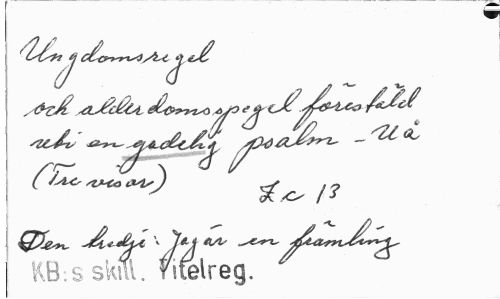 Ungdomsregel
och alderdomsspegel förestäld
uti en gudelig psalm - Uå
(Tre visor)
Zc 13
Den tredje: Jag är en främling
KB:s skill. Titelreg.